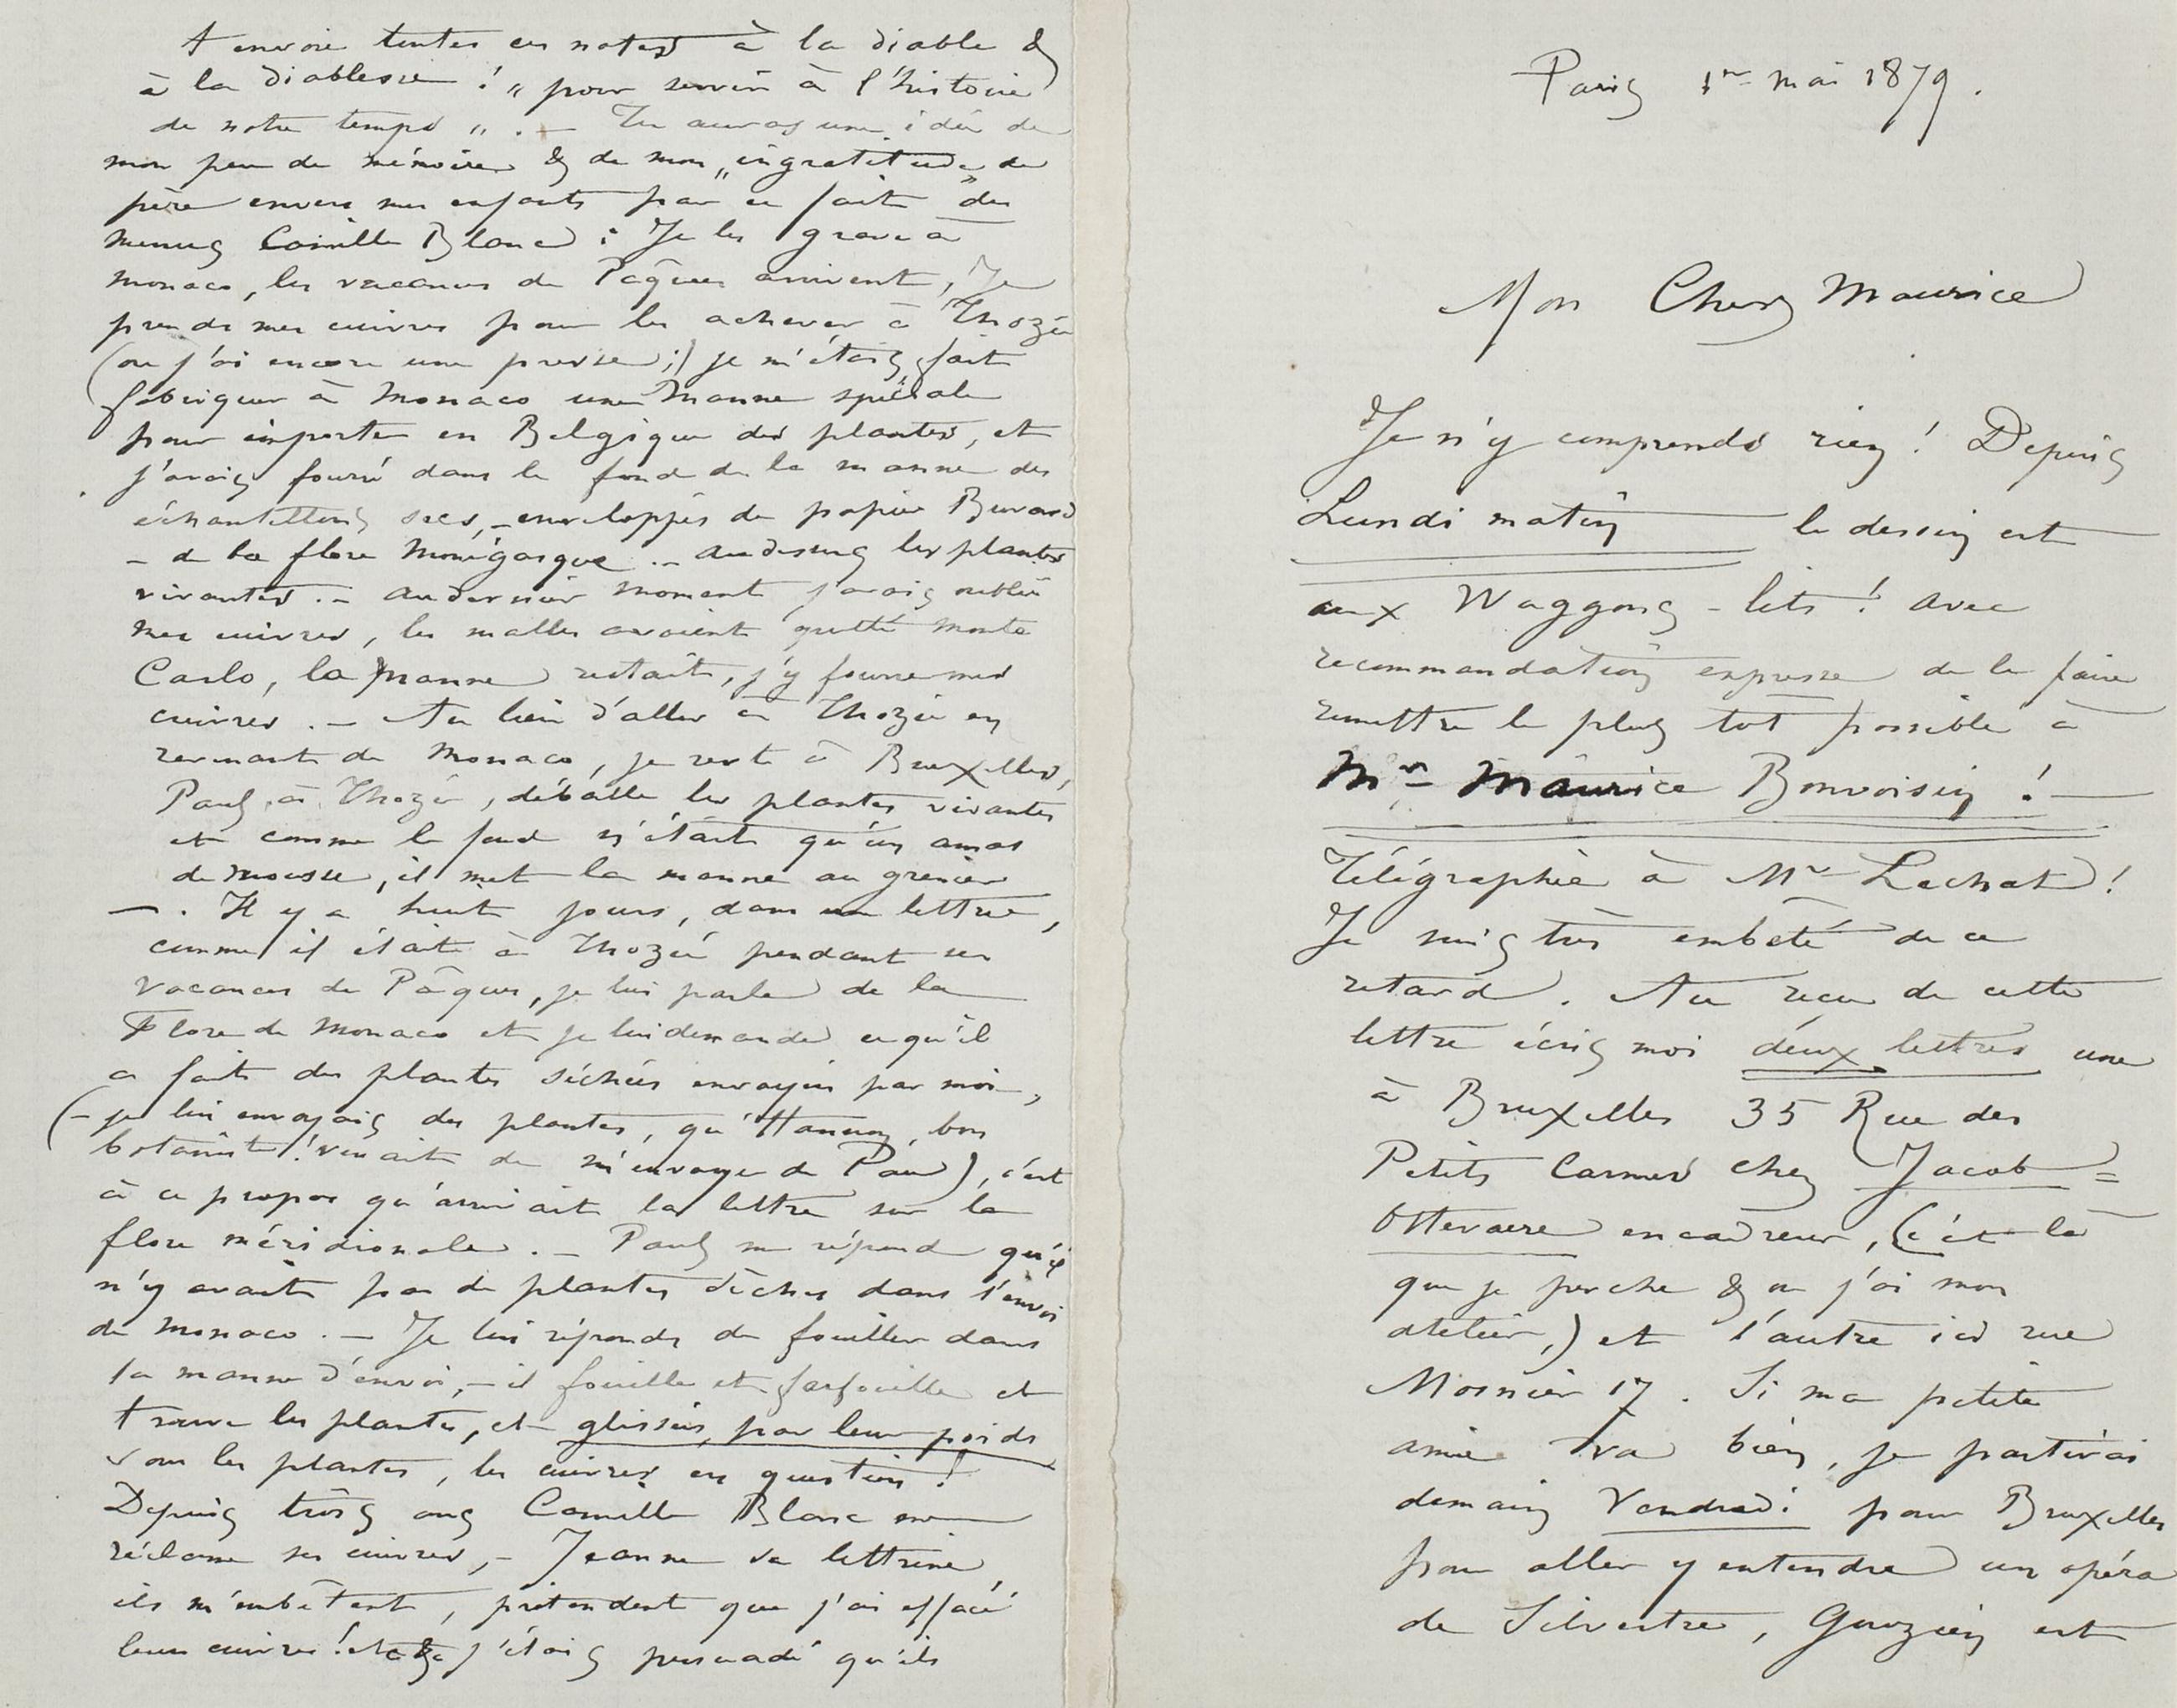 t'envoie toutes ces notes à la diable &
à la diablesse ! „ pour servir à l'histoire
de notre temps „ . — Tu auras une idée de
mon peu de mémoire & de mon „ ingratitude de
père envers mes enfants par ce fait " des
menus Camille Blanc : Je les grave à
Monaco, les vacances de Pâques arrivent, Je
prends mes cuivres pour les achever à Thozée
(ou j'ai encore une presse ;) je m'étais fait
fabriquer à Monaco une Manne spéciale
pour importer en Belgique des plantes, et
j'avais fourré dans le fond de la manne des
échantillons secs, – enveloppés de papier Buvard
– de la flore Monégasque . – au dessus les plantes
vivantes . – au dernier moment j'avais oublié
mes cuivres, les malles avaient quitté Monte
Carlo, la manne restait, j'y fourre mes
cuivres . – Au lieu d'aller à Thozée en
revenant de Monaco, je reste à Bruxelles,
Paul, à Thozée, déballe les plantes vivantes
et comme le fond n'était qu'un amas
de mousse, il met la manne au grenier
– . Il y a huit jours, dans une lettre,
comme il était à Thozée pendant ses
vacances de Pâques, je lui parle de la
Flore de Monaco et je lui demande ce qu'il
a fait des plantes séchées envoyées par moi,
(– je lui envoyais des plantes, qu'Hannon, bon
botaniste ! venait de m'envoyer de Pau), c'est
à ce propos qu'arrivait la lettre sur la
flore méridionale . – Paul me répond qu'il
n'y avait pas de plantes sèches dans l'envoi
de Monaco . – Je lui réponds de fouiller dans
la manne d'envoi, – il fouille et farfouille et
trouve les plantes, et glissés, par leur poids
sous les plantes, les cuivres en question !
Depuis trois ans Camille Blanc me
réclame ses cuivres, – Jeanne sa lettrine,
ils m'embêtent, prétendent que j'ai effacé
leurs cuivres ! et j'étais persuadé qu'ils
Paris 1er mai 1879.
Mon Cher Maurice
Je n'y comprends rien ! Depuis
Lundi matin le dessin est
aux Waggons – lits ! avec
recommandation expresse de le faire
remettre le plus tot possible à
Mr Maurice Bonvoisin ! –
Télégraphie à Mr Lechat !
Je suis très embêté de ce
retard . Au reçu de cette
lettre écris moi deux lettres une
à Bruxelles 35 Rue des
Petits Carmes chez Jacob =
Ottevaere encadreur, (c'est là
que je perche & ou j'ai mon
atelier,) et l'autre ici rue
Mosnier 17 . Si ma petite
amie va bien, je partirai
demain Vendredi pour Bruxelles
pour aller y entendre un opéra
de Silvestre, Gouzien est